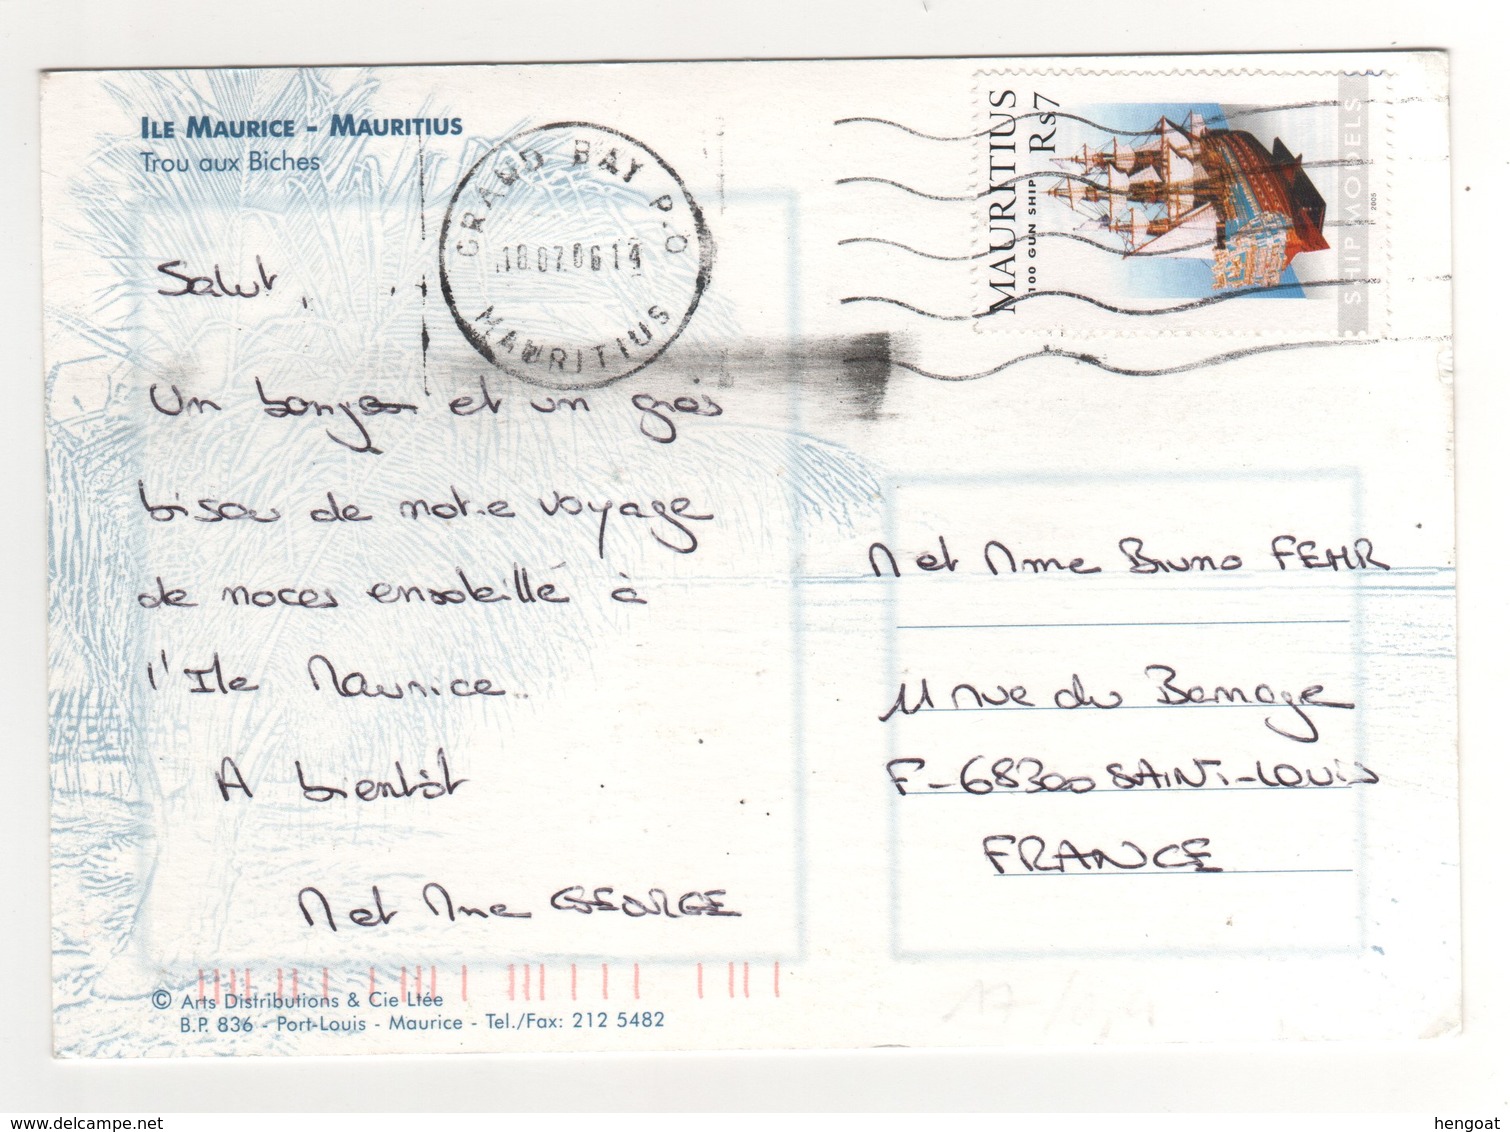 ILE MAURICE - MAURITIUS
Trou aux Biches
GRAND BAY P.O
18.07.06 14
MAURITIUS
MAURITIUS
Rs7
100 GUN SHIP
SHIP MODELS
2005
Salut,
Un bonjour et un gros
bisou de notre voyage
de noces ensoleillé à
l'Ile Maurice..
A bientôt
M et Mme GEORGE
M et Mme Bruno FEHR
11 rue du Barrage
F-68300 SAINT-LOUIS
FRANCE
© Arts Distributions & Cie Ltée
B.P. 836 - Port-Louis - Maurice - Tel./Fax: 212 5482
hengoat
delcampe.net